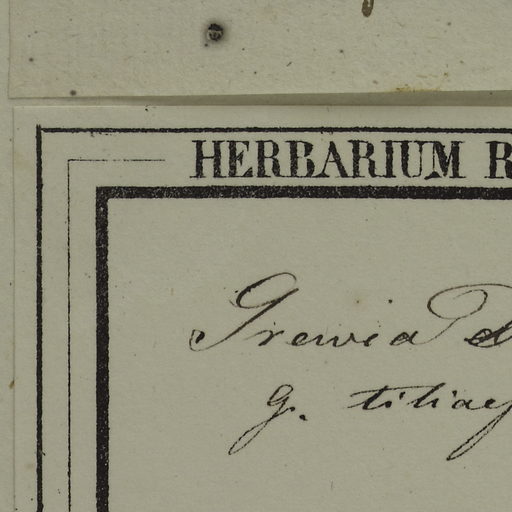 HERBARIUM R
Grewia
g. tiliaef